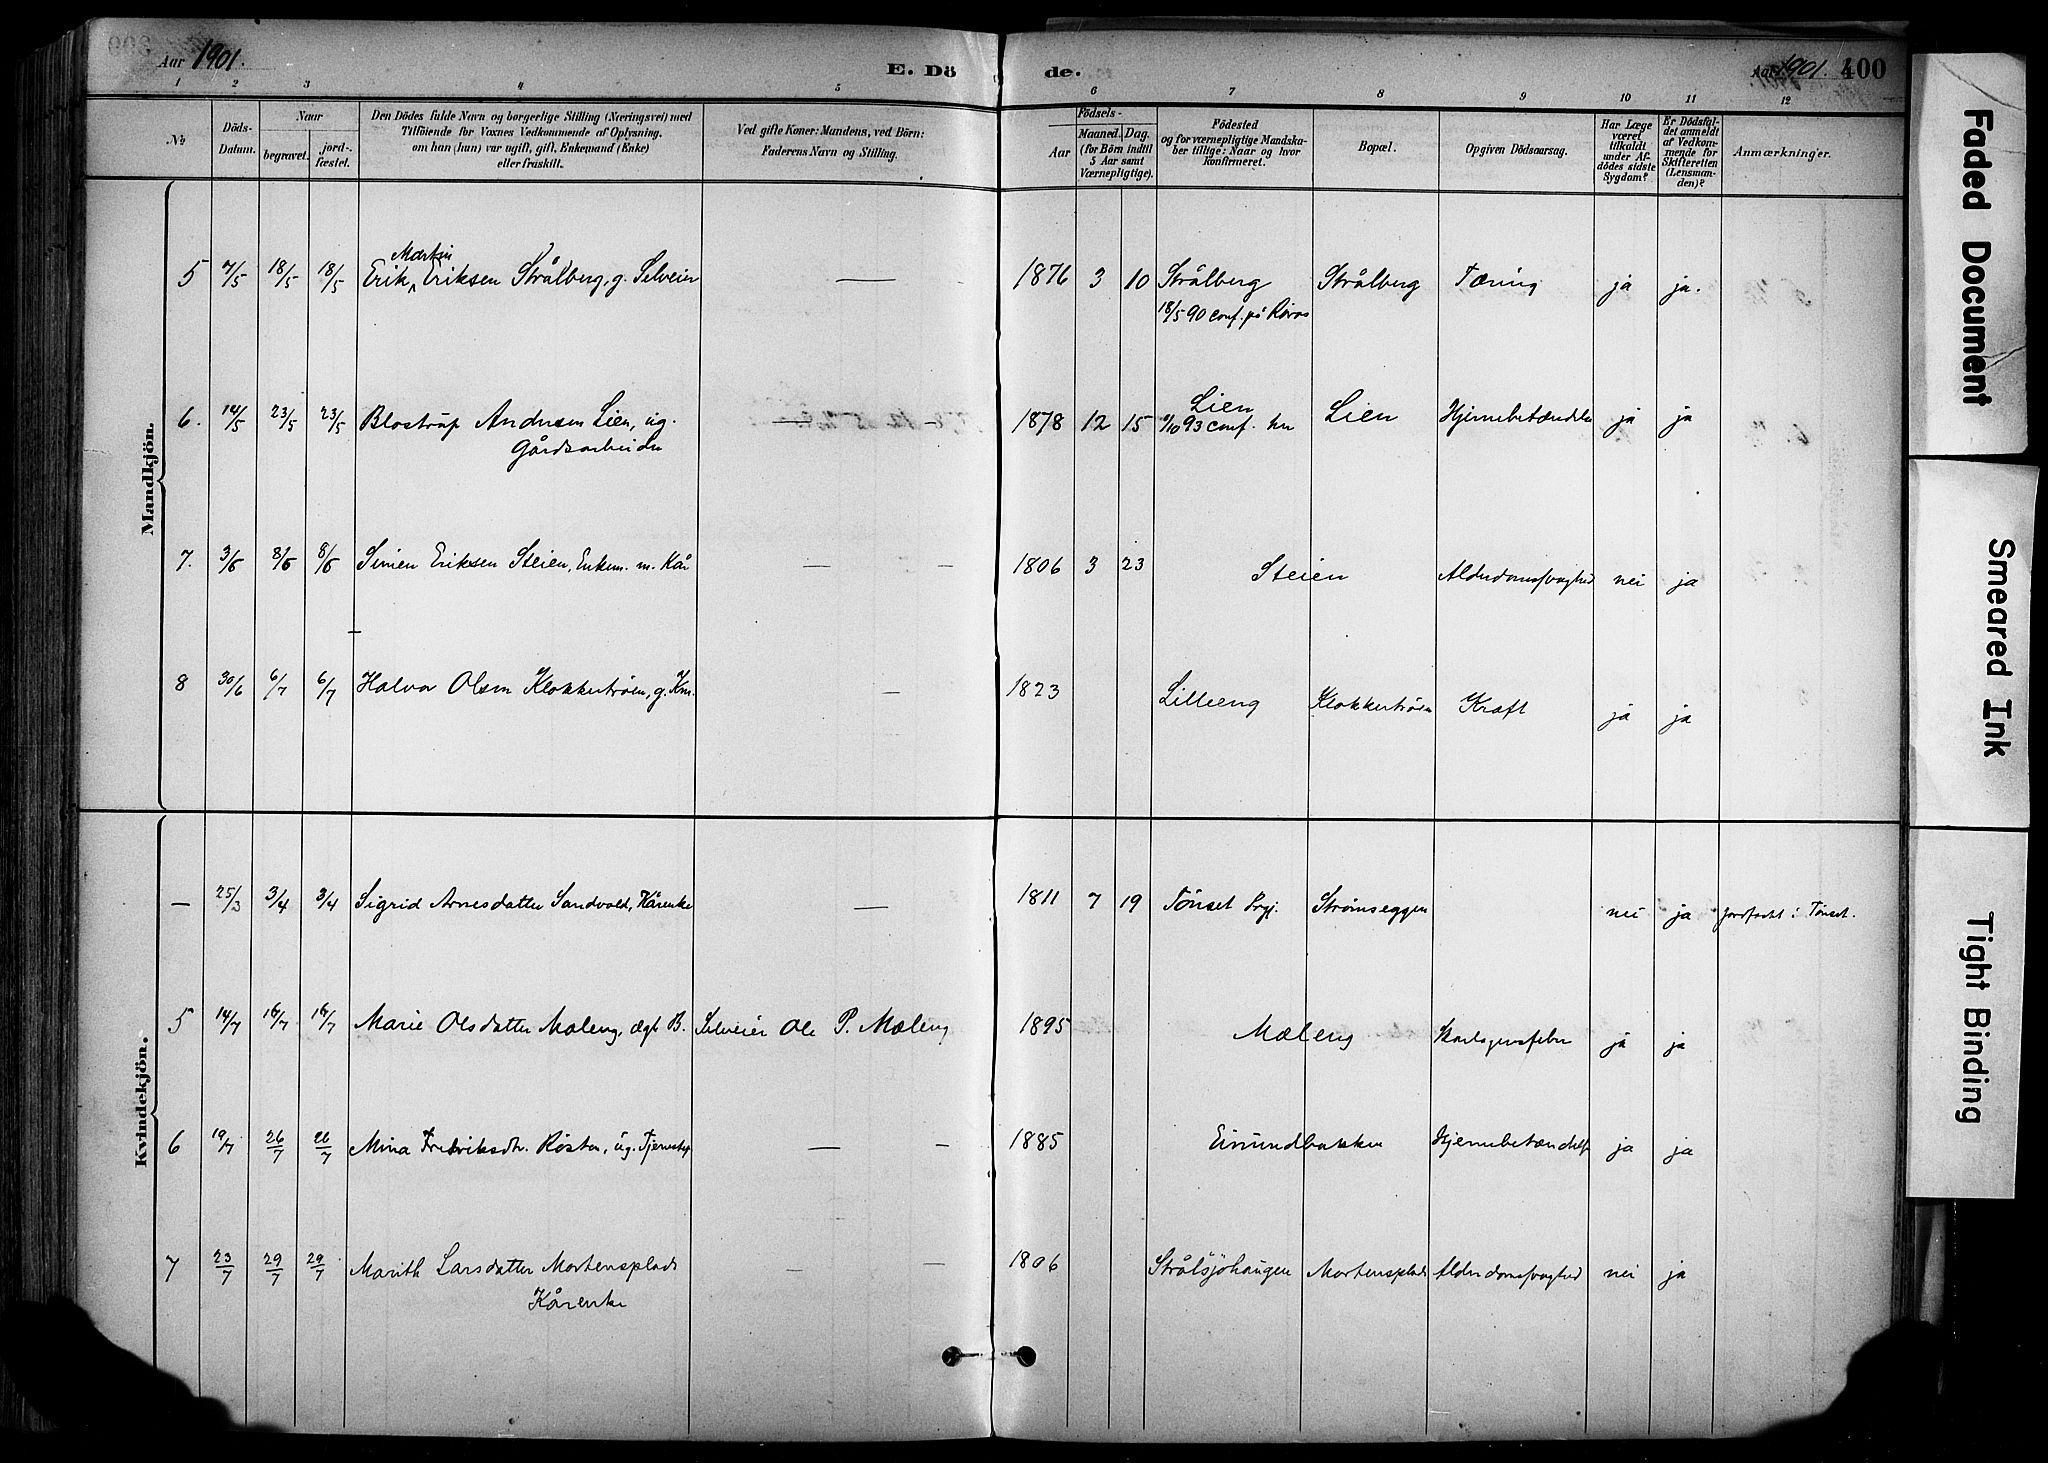 Aar 1901.
E. Dö
de.
Aar 1901. 400
1 2 3 4 5 6 7 8 9 10 11 12
No
Döds-
Datum.
Naar
begravet.
jord-
fæstet.
Den Dödes fulde Navn og borgerlige Stilling (Næringsvei) med
Tilföiende for Voxnes Vedkommende af Oplysning,
om han (hun) var ugift, gift, Enkemand (Enke)
eller fraskilt.
Ved gifte Koner: Mandens, ved Börn:
Faderens Navn og Stilling.
Födsels-
Aar
Maaned. Dag.
(for Börn indtil
5 Aar samt
Værnepligtige).
Födested
og for værnepligtige Mandska-
ber tillige: Naar og hvor
konfirmeret.
Bopæl.
Opgiven Dödsaarsag.
Har Læge
været
tilkaldt
under Af-
dödes sidste
Sygdom?
Er Dödsfal-
det anmeldt
af Vedkom-
mende for
Skifteretten
(Lensman-
den)?
Anmærkninger.
Mandkjön.
Martin
5 7/5 18/5 18/5 Erik Eriksen Strålberg, g. Selveier — 1876 3 10 Strålberg Strålberg Tæring ja ja.
18/5 90 conf. på Røros
6. 14/5 23/5 23/5 Blostrup Andersen Lien, ug. — — 1878 12 15 Lien Lien Hjernebetændelse ja ja
1/10 93 conf. her
Gårdsarbeider
7. 3/6 8/6 8/6 Simen Eriksen Steien, Enkem. m. Kår — — 1806 3 23 Steien Alderdomssvaghed nei ja
8 30/6 6/7 6/7 Halvor Olsen Klokkertrøen, g. Km. — 1823 Lilleeng Klokkertrøen Kræft ja ja
Kvindekjön.
— 25/3 3/4 3/4 Sigrid Arnesdatter Sandvold, Kårenke — 1811 7 19 Tønset Prgj. Strømseggen nei ja jordfæstet i Tønset.
5 14/7 16/7 16/7 Marie Olsdatter Mæleng, ægte B. Selveier Ole P. Mæleng 1895 Mæleng Skarlagensfeber ja ja
6 19/7 26/7 26/7 Mina Fredriksdtr. Røsten, ug. — — 1885 Einundbakken Hjernebetændelse ja ja
7 23/7 29/7 29/7 Marith Larsdatter Mortensplads — — 1806 Strålsjøhaugen Mortensplads Alderdomssvaghed nei ja
Kårenke
Faded Document
Smeared Ink
Tight Binding